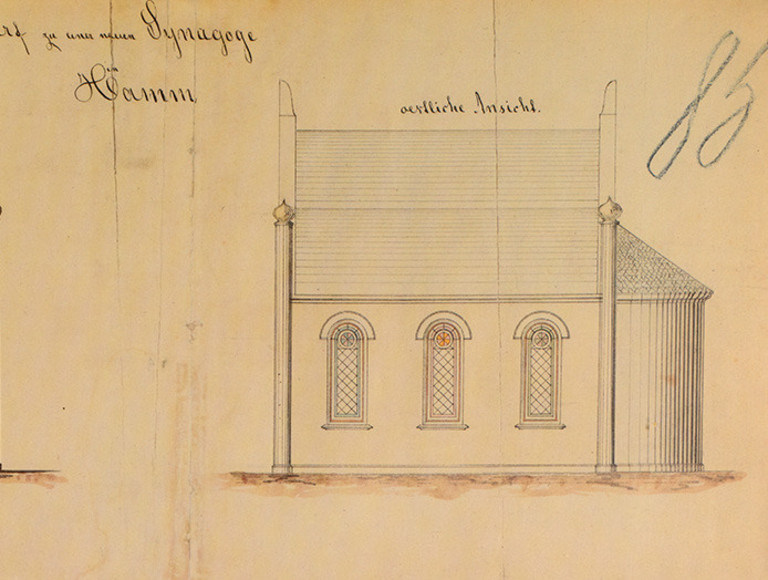 zu einer neuen Synagoge
in
Hamm
oestliche Ansicht.
85